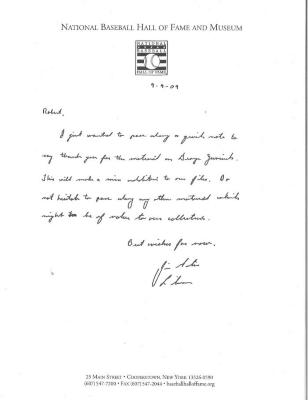 NATIONAL BASEBALL HALL OF FAME AND MUSEUM
NATIONAL
BASEBALL
HALL OF FAME
9-9-09
Robert,
I just wanted to pass along a quick note to
say thank you for the material on George
This will make a nice addition to our files. Do
not hesitate to pass along any other material which
might be of value to our collections.
Best wishes for now.
Jim
25 MAIN STREET • COOPERSTOWN, NEW YORK 13326-0590
(607) 547-7200 • FAX (607) 547-2044 • baseballhalloffame.org